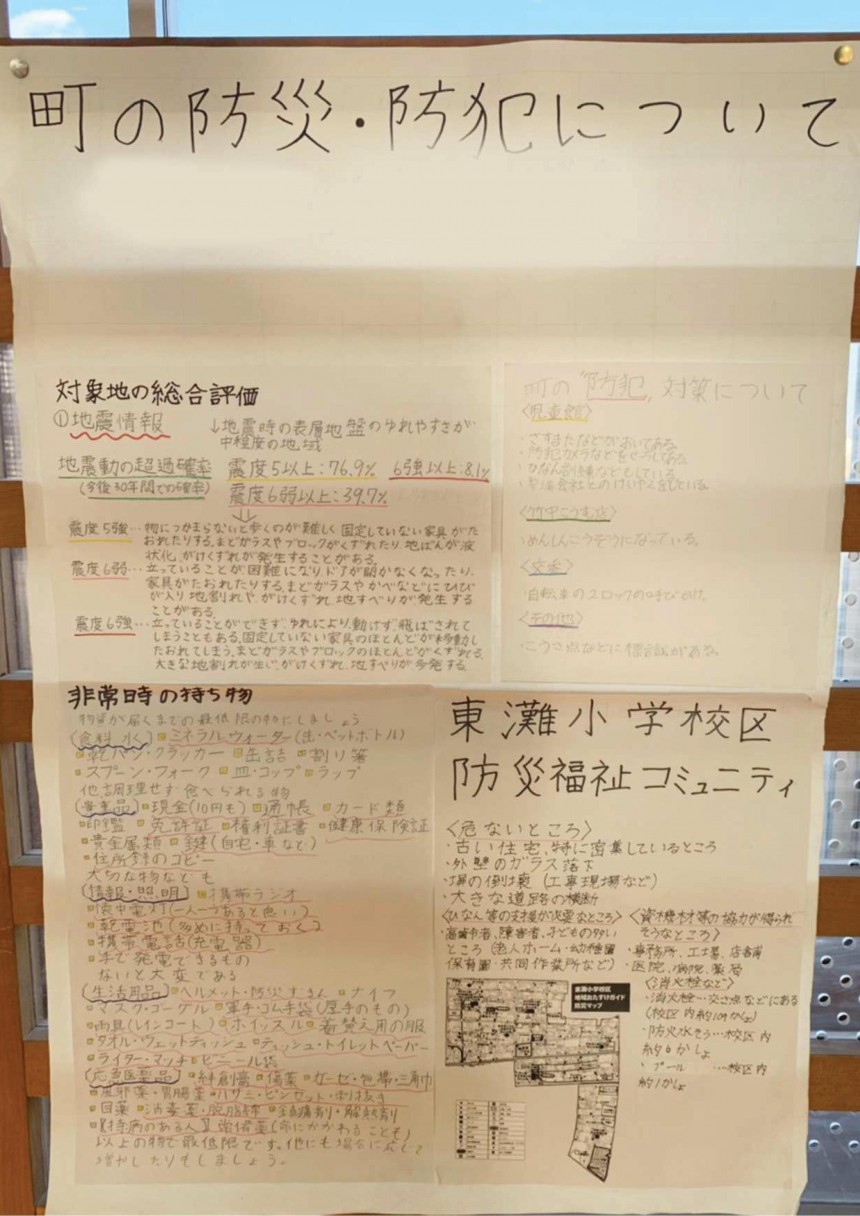 町の防災・防犯について
対象地の総合評価
①地震情報
↓地震時の表層地盤のゆれやすさが
中程度の地域
地震動の超過確率
(今後30年間での確率)
震度5以上:76.9% 6強以上:8.1%
震度6弱以上:39.7%
震度5強…物につかまらないと歩くのが難しく固定していない家具がた
おれたりする。まどガラスやブロックがくずれたり、地ばんが液
状化、がけくずれが発生することがある。
震度6弱…立っていることが困難になりドアが開かなくなったり、
家具がたおれたりする。まどガラスやかべなどにひび
が入り地割れや、がけくずれ、地すべりが発生する
ことがある。
震度6強…立っていることができず、ゆれにより動けず、飛ばされて
しまうこともある。固定していない家具のほとんどが移動し
たおれてしまう。まどガラスやブロックのほとんどがくずれる。
大きな地割れが生じ、がけくずれ、地すべりが多発する。
町の"防犯"対策について
〈児童館〉
・さすまたなどがおいてある。
・防犯カメラなどをせっちしてある。
・ひなん訓練などもしている。
会社とのけいやくをしている。
〈竹中こうむ店〉
・めんしんこうぞうになっている。
〈交番〉
・自転車の2ロックの呼びかけ。
〈その他〉
・こうさ点などに標識がある。
非常時の持ち物
物資が届くまでの最低限の物にしましょう
(食料 水) ミネラルウォーター(缶・ペットボトル)
乾パン・クラッカー 缶詰 割り箸
スプーン・フォーク 皿・コップ ラップ
他、調理せず食べられる物
(貴重品) 現金(10円も) 通帳 カード類
印鑑 免許証 権利証書 健康保険証
貴金属類 鍵(自宅・車など)
住所録のコピー
大切な物なども
(情報・照明) 携帯ラジオ
懐中電灯(一人一つあると良い)
乾電池(多めに持っておく)
携帯電話(充電器)
手で発電できるもの
ないと大変である
(生活用品) ヘルメット・防災ずきん ナイフ
マスク・ゴーグル 軍手・ゴム手袋(厚手のもの)
雨具(レインコート) ホイッスル 着替え用の服
タオル・ウェットティッシュ ティッシュ・トイレットペーパー
ライター・マッチ ビニール袋
(応急医薬品) 絆創膏 傷薬 ガーゼ・包帯・三角巾
風邪薬・胃腸薬 ハサミ・ピンセット・刺抜き
目薬 消毒薬・脱脂綿 鎮痛剤・解熱剤
【持病のある人】常備薬(命にかかわることも)
以上の物で最低限です。他にも場合に応じて
増やしたりもしましょう。
東灘小学校区
防災福祉コミュニティ
〈危ないところ〉
・古い住宅、特に密集しているところ
・外壁のガラス落下
・塀の倒壊(工事現場など)
・大きな道路の横断
〈ひなん等の支援が必要なところ〉
・高齢者、障害者、子どもの多い
ところ(老人ホーム・幼稚園
保育園・共同作業所など)
〈資機材等の協力が得られ
そうなところ〉
・事務所、工場、店舗
・医院、病院、薬局
〈消火栓など〉
・消火栓…交さ点などにある
(校区内約109かしょ)
・防火水そう…校区内
約6かしょ
・プール …校区内
約1かしょ
東灘小学校区
地域おたすけガイド
防災マップ